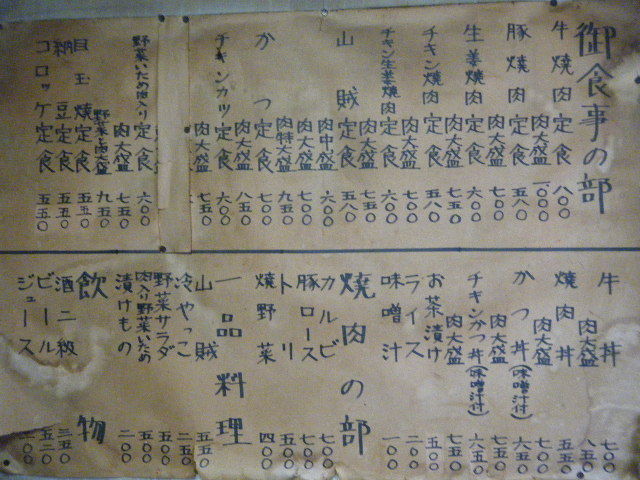 御食事の部
牛焼肉定食 八〇〇
肉大盛 一〇〇〇
豚焼肉定食 五八〇
肉大盛 七〇〇
生姜焼肉定食 六〇〇
肉大盛 七五〇
チキン焼肉定食 五八〇
肉大盛 七〇〇
チキン生姜焼肉定食 六〇〇
肉大盛 七五〇
山賊定食 五八〇
肉中盛 六〇〇
肉大盛 七〇〇
肉特大盛 九五〇
かつ定食 七〇〇
肉大盛 八五〇
チキンカツ定食 六〇〇
肉大盛 七五〇
野菜いため肉入り定食 六〇〇
肉大盛 七五〇
野菜と肉大盛 九五〇
目玉焼定食 五五〇
納豆定食 五五〇
コロッケ定食 五五〇
牛丼 七〇〇
肉大盛 八五〇
焼肉丼 五五〇
肉大盛 七〇〇
かつ丼(味噌汁付) 六五〇
肉大盛 七五〇
チキンかつ丼(味噌汁付) 六五〇
肉大盛 七五〇
お茶漬け 五〇〇
ライス 二〇〇
味噌汁 一〇〇
焼肉の部
カルビ 七〇〇
豚ロース 七〇〇
トリ 五〇〇
焼野菜 四〇〇
一品料理
山賊 五五〇
冷やっこ 二五〇
野菜サラダ 五〇〇
肉入り野菜いため 五〇〇
漬けもの 二〇〇
飲物
酒二級
ビール 五二〇
ジュース